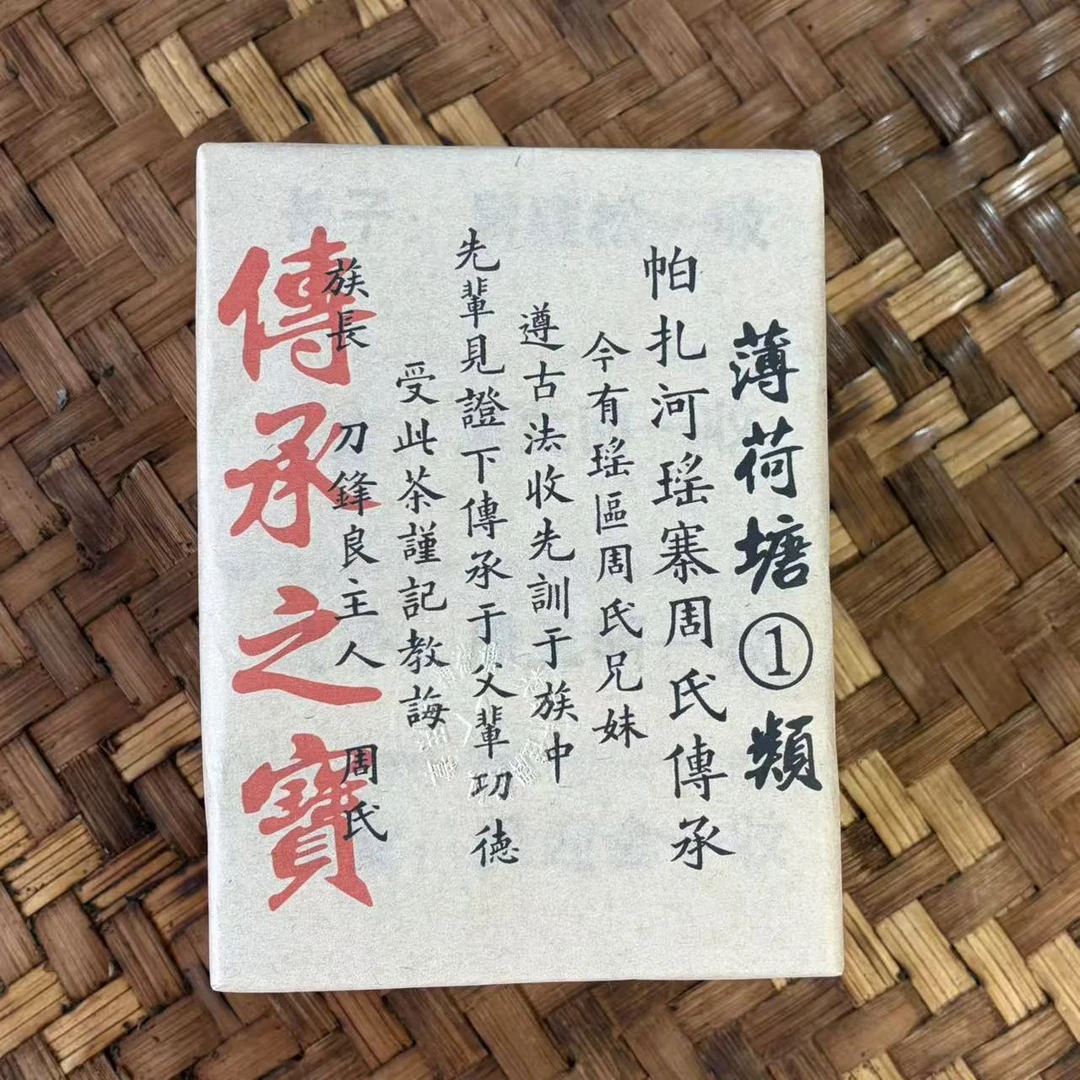 薄荷塘①類
帕扎河瑶寨周氏傳承
今有瑶區周氏兄妹
遵古法收先訓于族中
先輩見證下傳承于父輩功德
受此茶謹記教誨
族長 刀鋒良主人 周氏
傳承之寶